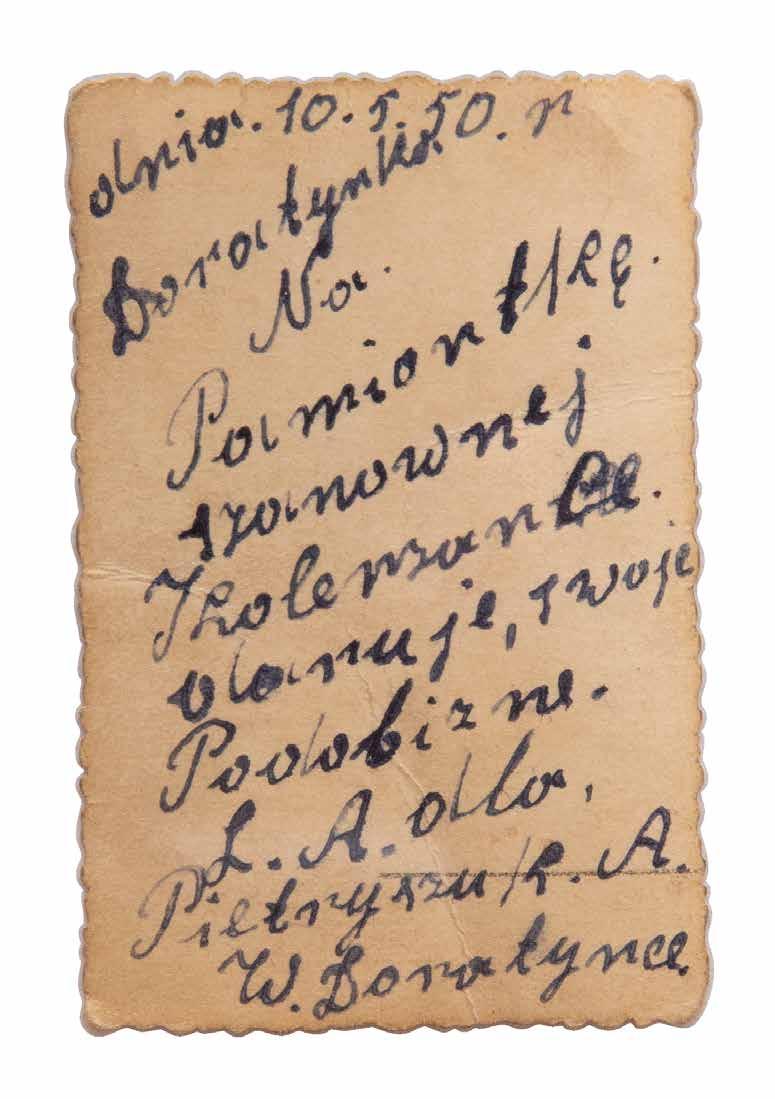 dnia. 10. 5. 50. r
Boratynka.
Na.
Pamiontkę.
szanownej
Kolerzance.
daruje, swoje
Podobizne.
L. A. dla,
Pietryszuk. A.
W. Boratynce.